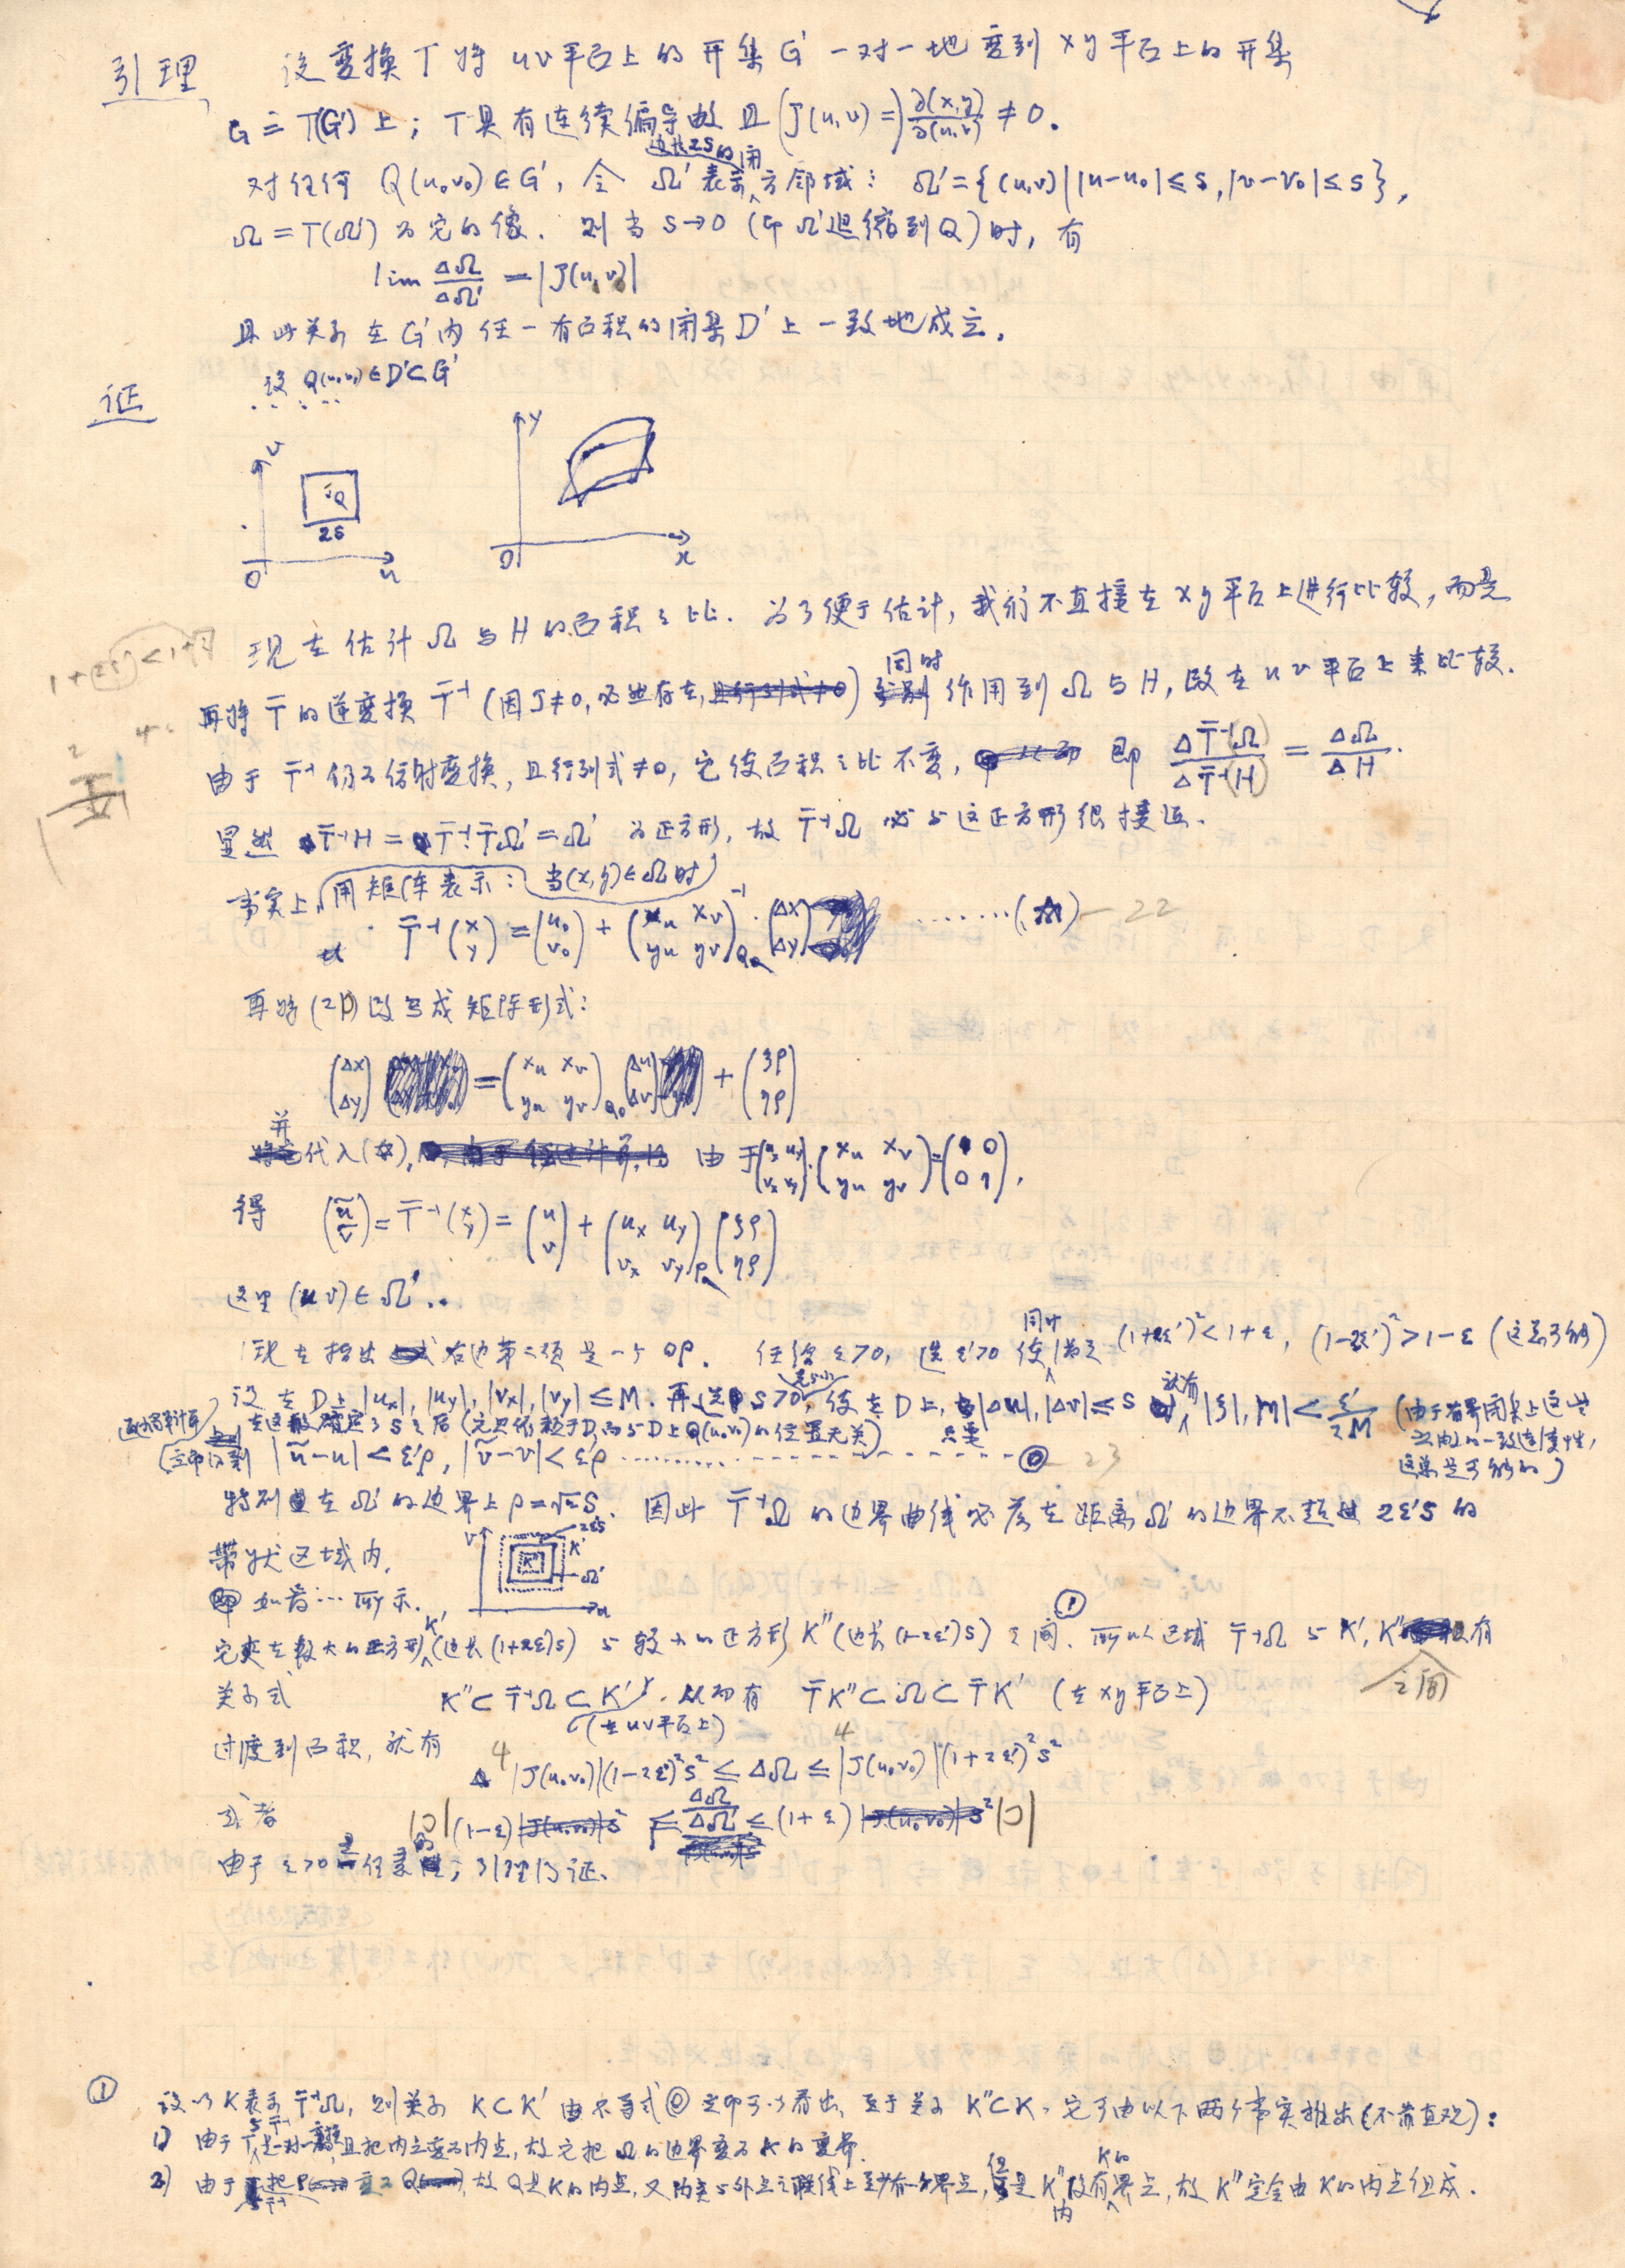 引理 设变换 T 将 uv平面上的开集 G' 一对一地变到 xy平面上的开集
G = T(G') 上; T具有连续偏导数 且 (J(u,v)=) ∂(x,y)/∂(u,v) ≠ 0.
对任何 Q(u₀v₀)∈G', 令 Ω' 表示边长2S的闭方邻域: Ω'={(u,v)||u-u₀|≤s, |v-v₀|≤s},
Ω = T(Ω') 为它的像. 则当 S→0 (即 Ω'退缩到Q) 时, 有
lim ΔΩ/ΔΩ' = |J(u,v)|
且此关系在 G'内任一有面积的闭集 D' 上一致地成立.
证 设 Q(u₀v₀)∈D'⊂G'
v
Q
2S
O
u
y
O
x
现在估计 Ω 与 H 的面积之比. 为了便于估计, 我们不直接在 xy平面上进行比较, 而是
再将 T̄ 的逆变换 T̄⁻¹ (因J≠0, 必然存在) 同时作用到 Ω 与 H, 改在 uv平面上来比较.
由于 T̄⁻¹ 仍为仿射变换, 且行列式≠0, 它使面积之比不变, 即 ΔT̄⁻¹(Ω)/ΔT̄⁻¹(H) = ΔΩ/ΔH.
显然 T̄⁻¹H = T̄⁻¹T̄Ω' = Ω' 为正方形, 故 T̄⁻¹Ω 必与这正方形很接近.
事实上, 用矩阵表示: 当(x,y)∈Ω时
T̄⁻¹(x y) = (u₀ v₀) + (xu xv yu yv)⁻¹Q₀ (Δx Δy) ........(☆) — 22
再将(21)改写成矩阵形式:
(Δx Δy) = (xu xv yu yv)Q₀ (Δu Δv) + (ξρ ηρ)
并代入(☆), 由于 (ux uy vx vy)·(xu xv yu yv)=(1 0 0 1),
得 (ũ ṽ) = T̄⁻¹(x y) = (u v) + (ux uy vx vy) (ξρ ηρ)
这里 (u v)∈Ω'
现在指出右边第二项是一个 oρ. 任给 ε>0, 选 ε'>0 使同时满足 (1+2ε')²<1+ε, (1-2ε')²>1-ε (这是可能)
设在 D上 |ux|, |uy|, |vx|, |vy| ≤ M. 再选 S>0, 使在 D上, |Δu|, |Δv|≤S 就有 |ξ|, |η|< ε'/2M (由于有界闭集上这些
在这般确定了 S 之后 (它只依赖于D, 而与D上Q(u₀v₀)的位置无关) 只要
函数的一致连续性,
立即得到 |ũ-u|<ε'ρ, |ṽ-v|<ε'ρ ................ ◎ — 23
这总是可能的)
特别在 Ω' 的边界上 ρ=√2S. 因此 T̄⁻¹Ω 的边界曲线必落在距离 Ω' 的边界不超过 2ε'S 的
带状区域内.
如番…所示.
v
2ε'S
K'
K''
Ω'
u
它夹在较大的正方形K'(边长(1+2ε')S) 与较小的正方形 K''(边长(1-2ε')S) 之间. ① 所以区域 T̄⁻¹Ω 与 K', K''之间有
关系式 K''⊂T̄⁻¹Ω⊂K' (在uv平面上), 从而有 T̄K''⊂Ω⊂T̄K' (在 xy平面上)
过度到面积, 就有
4|J(u₀v₀)|(1-2ε')²S² ≤ ΔΩ ≤ 4|J(u₀v₀)|(1+2ε')²S²
或者 |J|(1-ε) ≤ ΔΩ/ΔΩ' ≤ (1+ε)|J|
由于 ε>0 是任意的, 引理得证.
① 设以 K表示 T̄⁻¹Ω, 则关系 K⊂K' 由不等式◎立即可以看出, 至于关系 K''⊂K, 它可由以下两个事实推出(不靠直观):
1) 由于T与T̄⁻¹是一对一变换, 且把内点变为内点, 故它把 Ω的边界变为K的边界.
2) 由于 T̄⁻¹把P变为Q, 故Q是K的内点, 又内点与外点之联线上至少有一界点, 但是 K''内没有K的界点, 故 K''完全由K的内点组成.